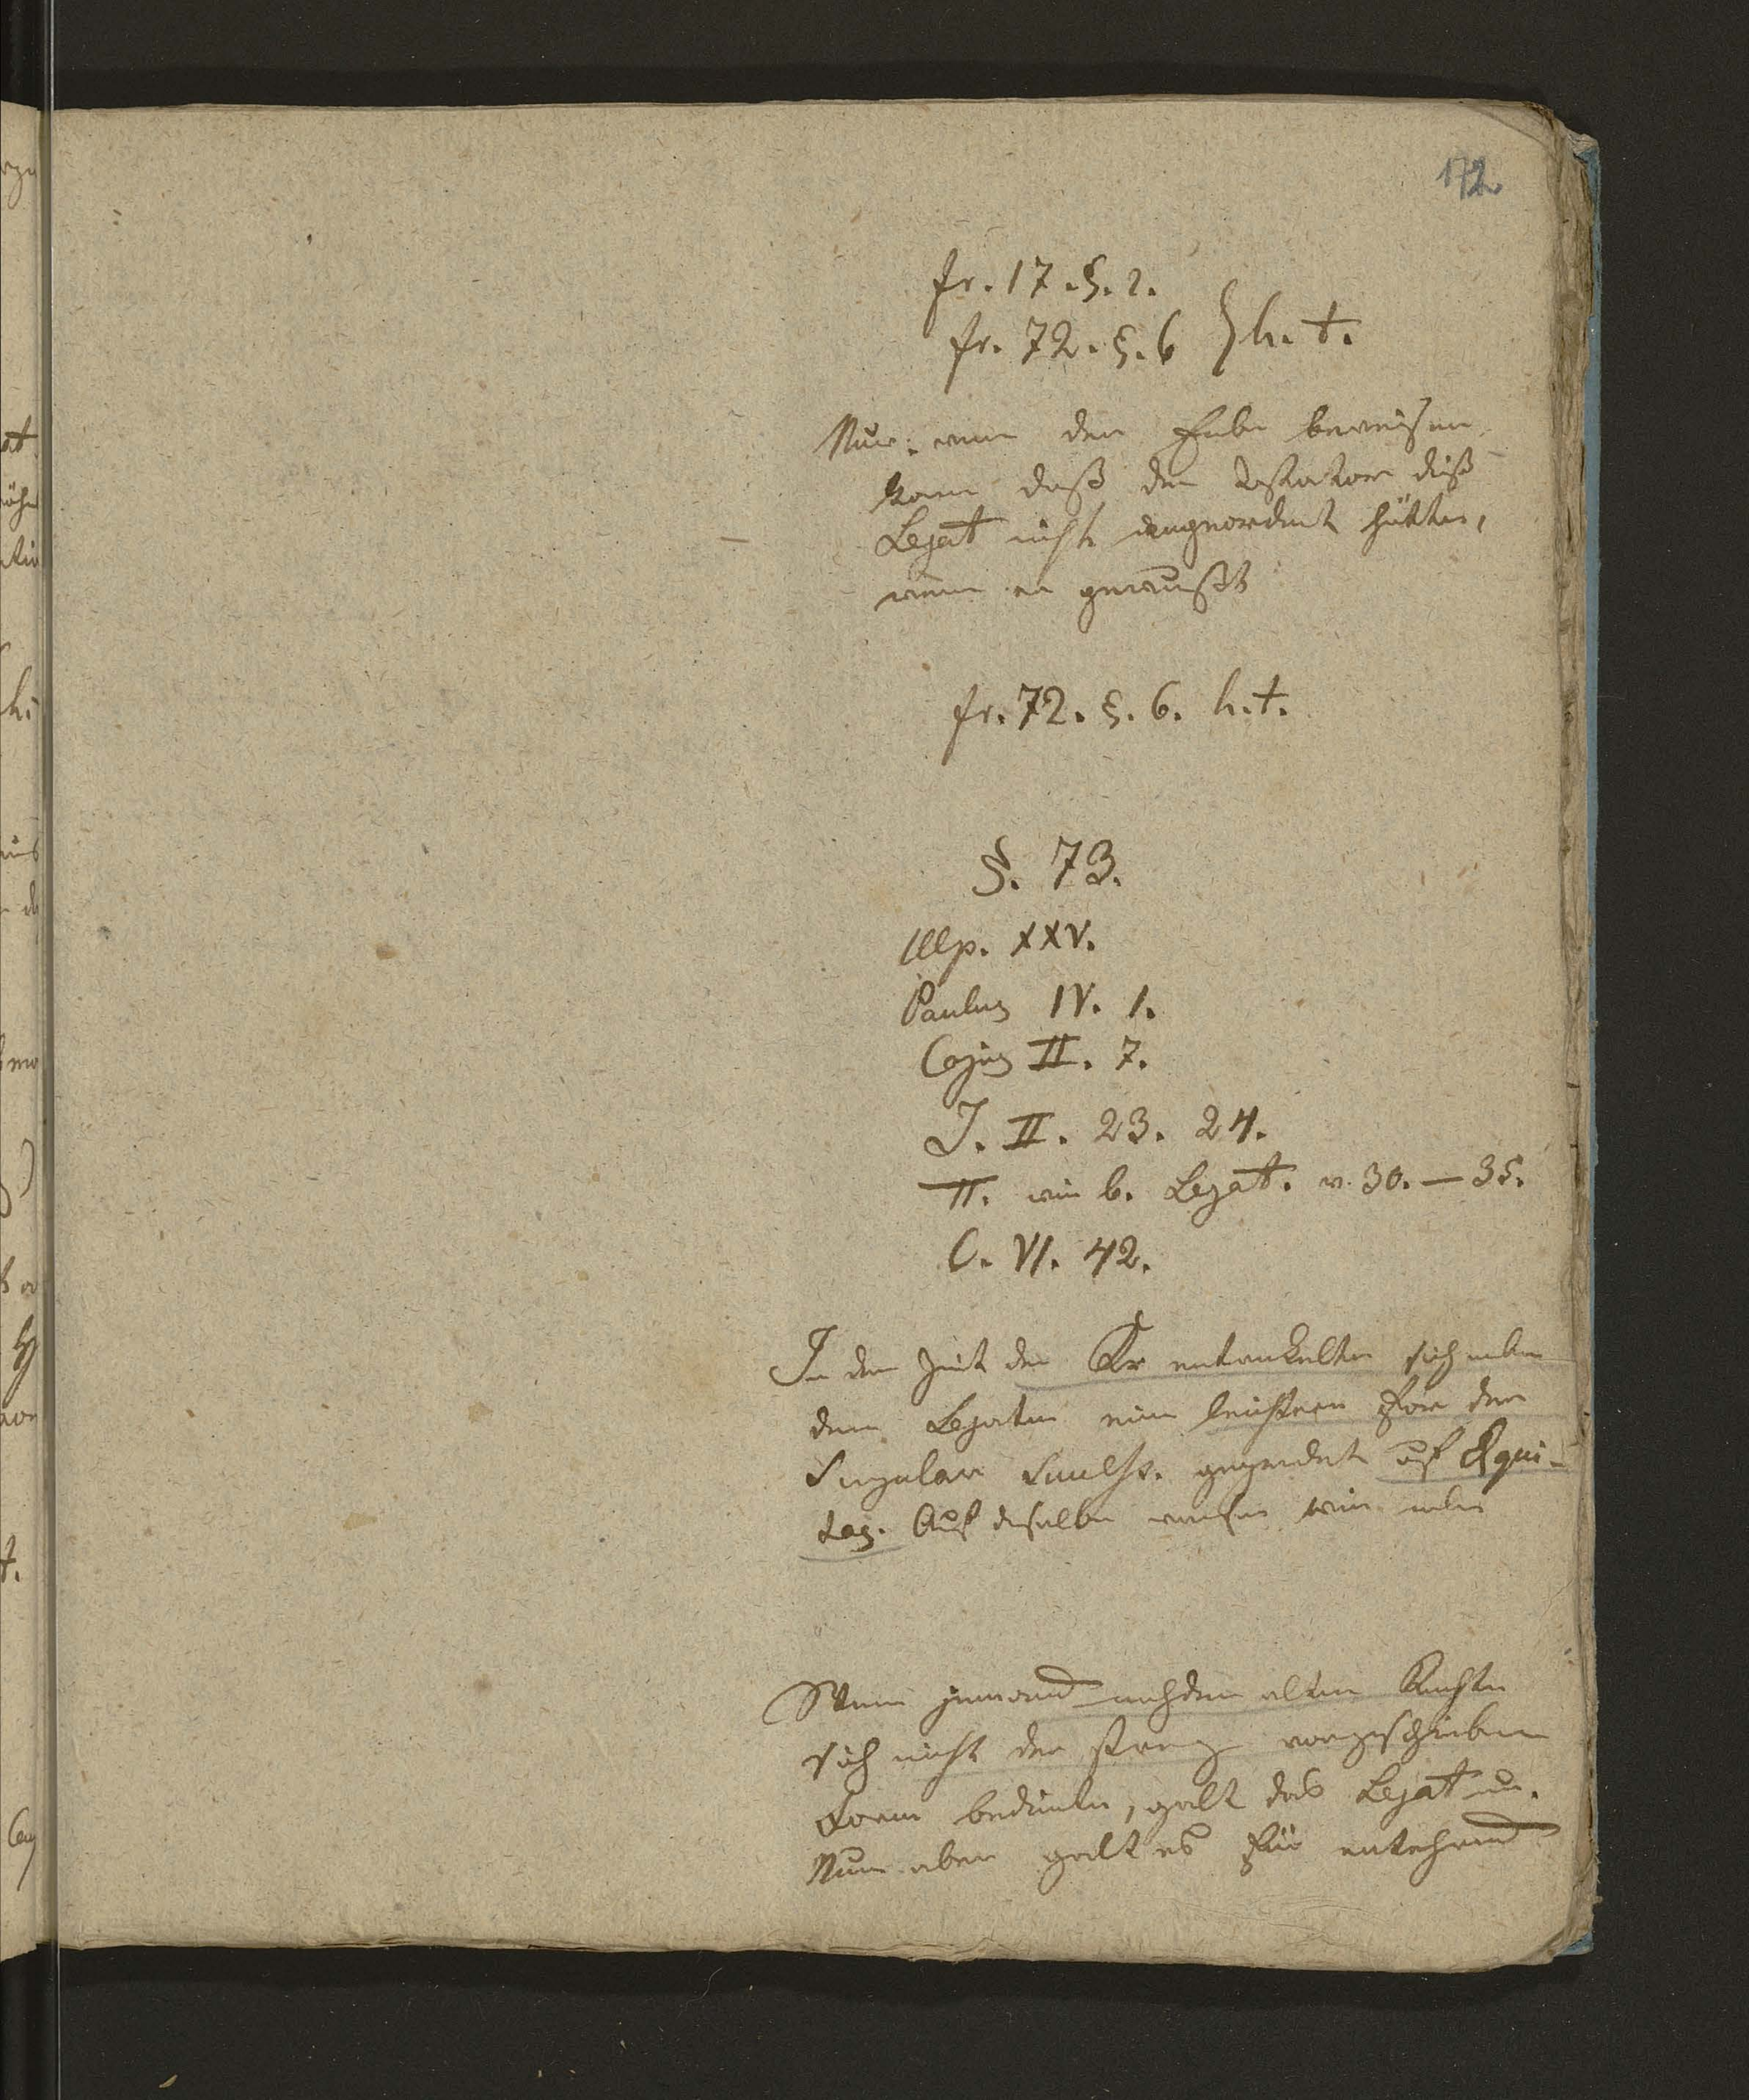 172
fr. 17. §. 2.
fr. 72. §. 6 } h. t.
Nur: wenn der Erbe beweisen
kann daß der Testator dieß
Legat nicht angeordnet hätte,
wenn er gewußt
fr. 72. §. 6. h. t.
§. 73.
Ulp. XXV.
Paulus IV. 1.
Cajus II. 7.
J. II. 23. 24.
II. wie b. Legat. v. 30. — 35.
C. VI. 42.
In der Zeit der Kr entwickelte sich neben
den Legaten eine leichtere For der
Singular gegründet auf Equi-
tas. Auf derselben
Wenn jemand nach dem alten Rechte
sich nicht der streng vorgeschrieben
Form bediente, galt das Legat
Nun aber galt es für entehrend